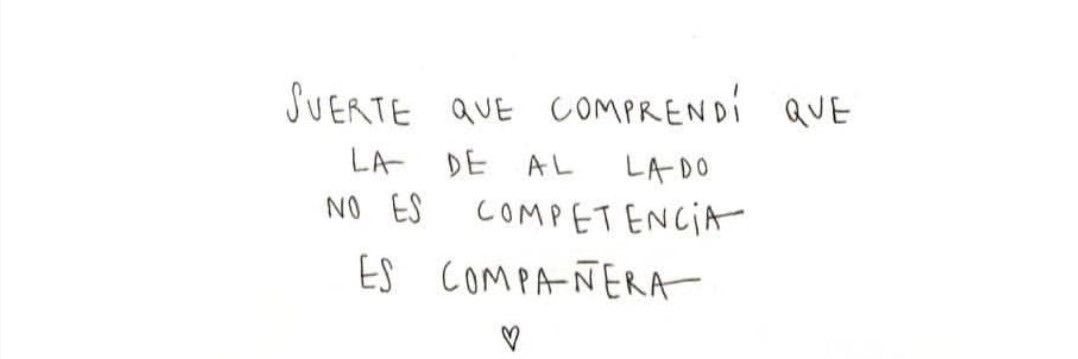 SUERTE QUE COMPRENDÍ QUE
LA DE AL LADO
NO ES COMPETENCIA
ES COMPAÑERA